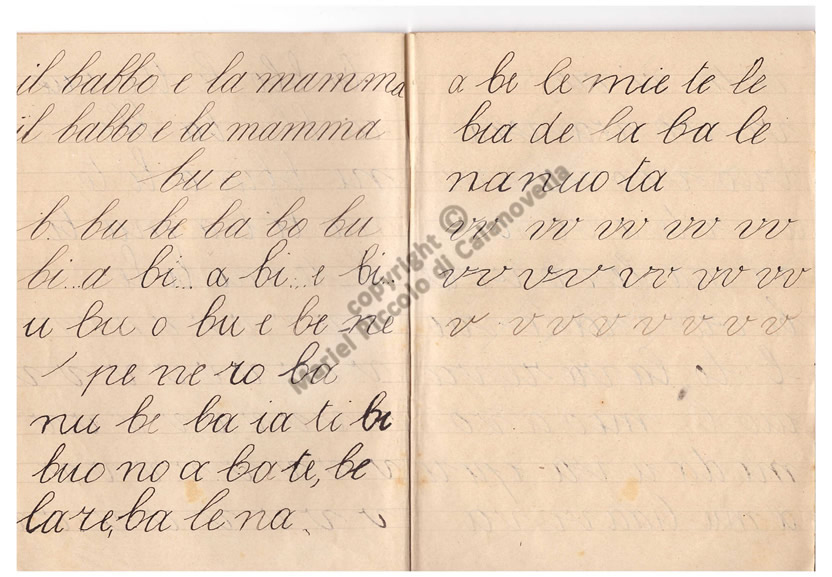 il babbo e la mamma
il babbo e la mamma
bu e
b. bu be ba bo bu
bi...a bi... a bi... e bi...
u bu o bu e be ne
pe ne ro ba
nu be ba ia ti bi
buo no a ba te, be
la re, ba le na.
a be le mie te le
bia de la ba le
na nuo ta
vv vv vv vv vv
vv vv vv vv vv vv
v v v v v v v v
copyright ©
Meriel Piccolo di Calanovella